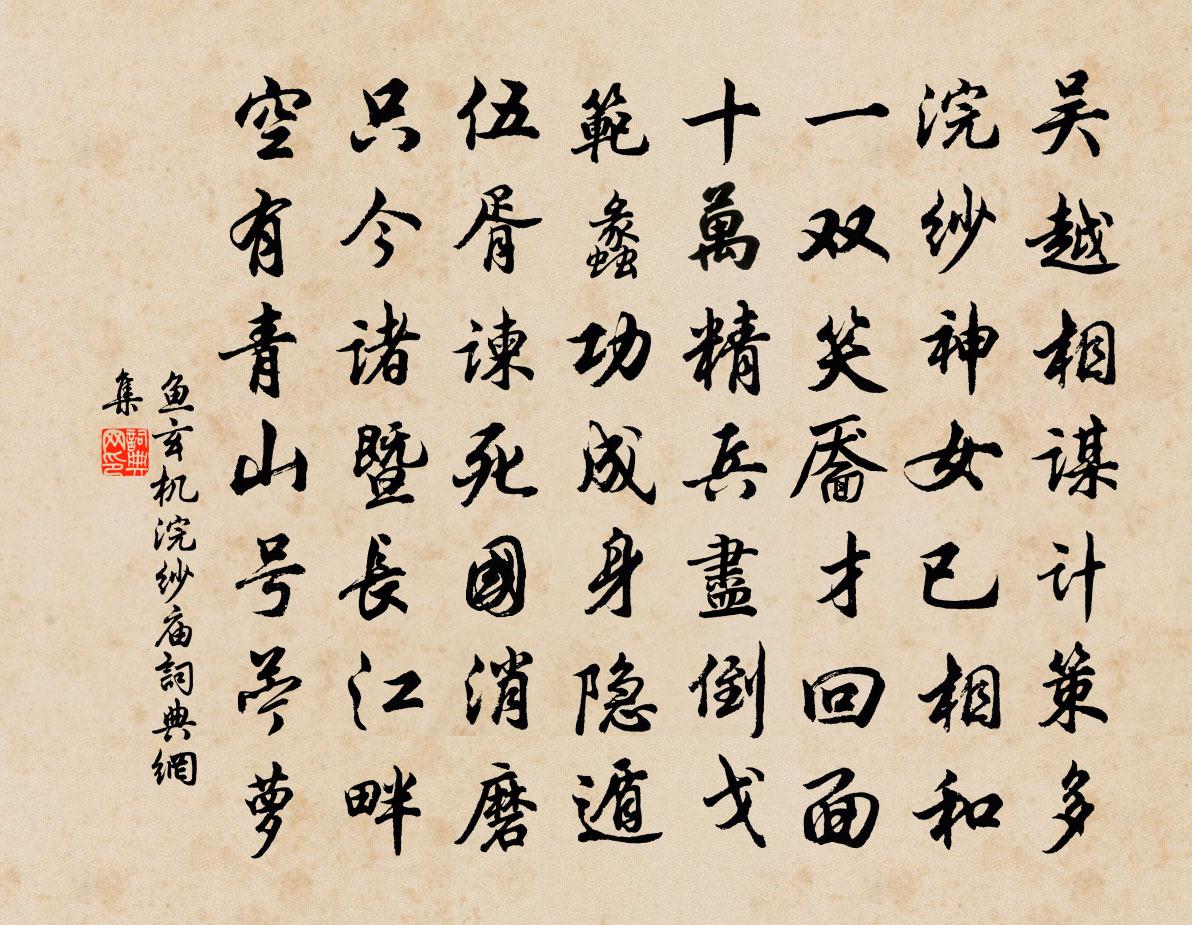 吴越相谋计策多
浣纱神女已相和
一双笑靥才回面
十萬精兵盡倒戈
範蠡功成身隐遁
伍胥谏死國消磨
只今诸暨長江畔
空有青山号苎萝
鱼玄机浣纱庙詞典網
集
詞典网印